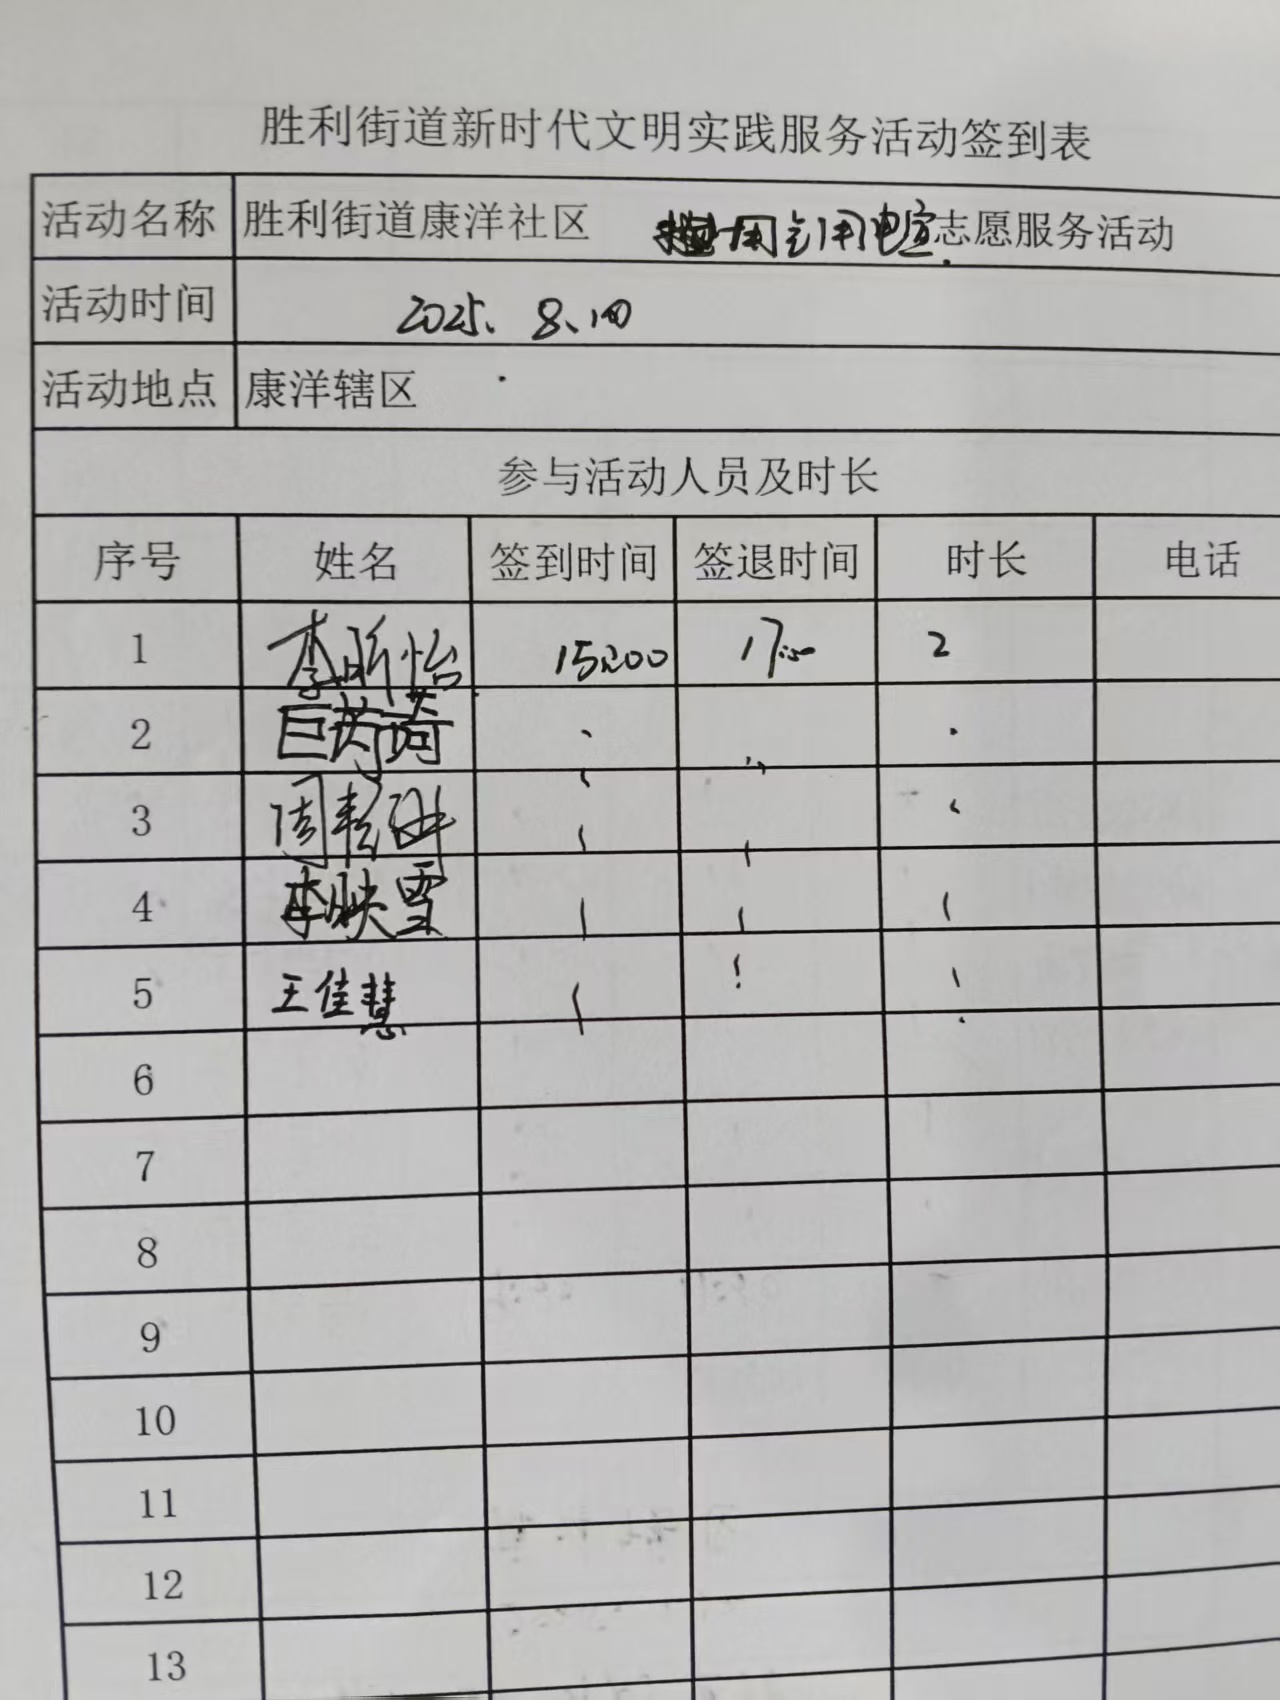 胜利街道新时代文明实践服务活动签到表
活动名称 胜利街道康洋社区 用电宣志愿服务活动
活动时间 2025. 8. 10
活动地点 康洋辖区
参与活动人员及时长
序号 姓名 签到时间 签退时间 时长 电话
1 李昕怡 15:00 17:00 2
2 巨芮琦
3 周
4 李映雪
5 王佳慧
6
7
8
9
10
11
12
13